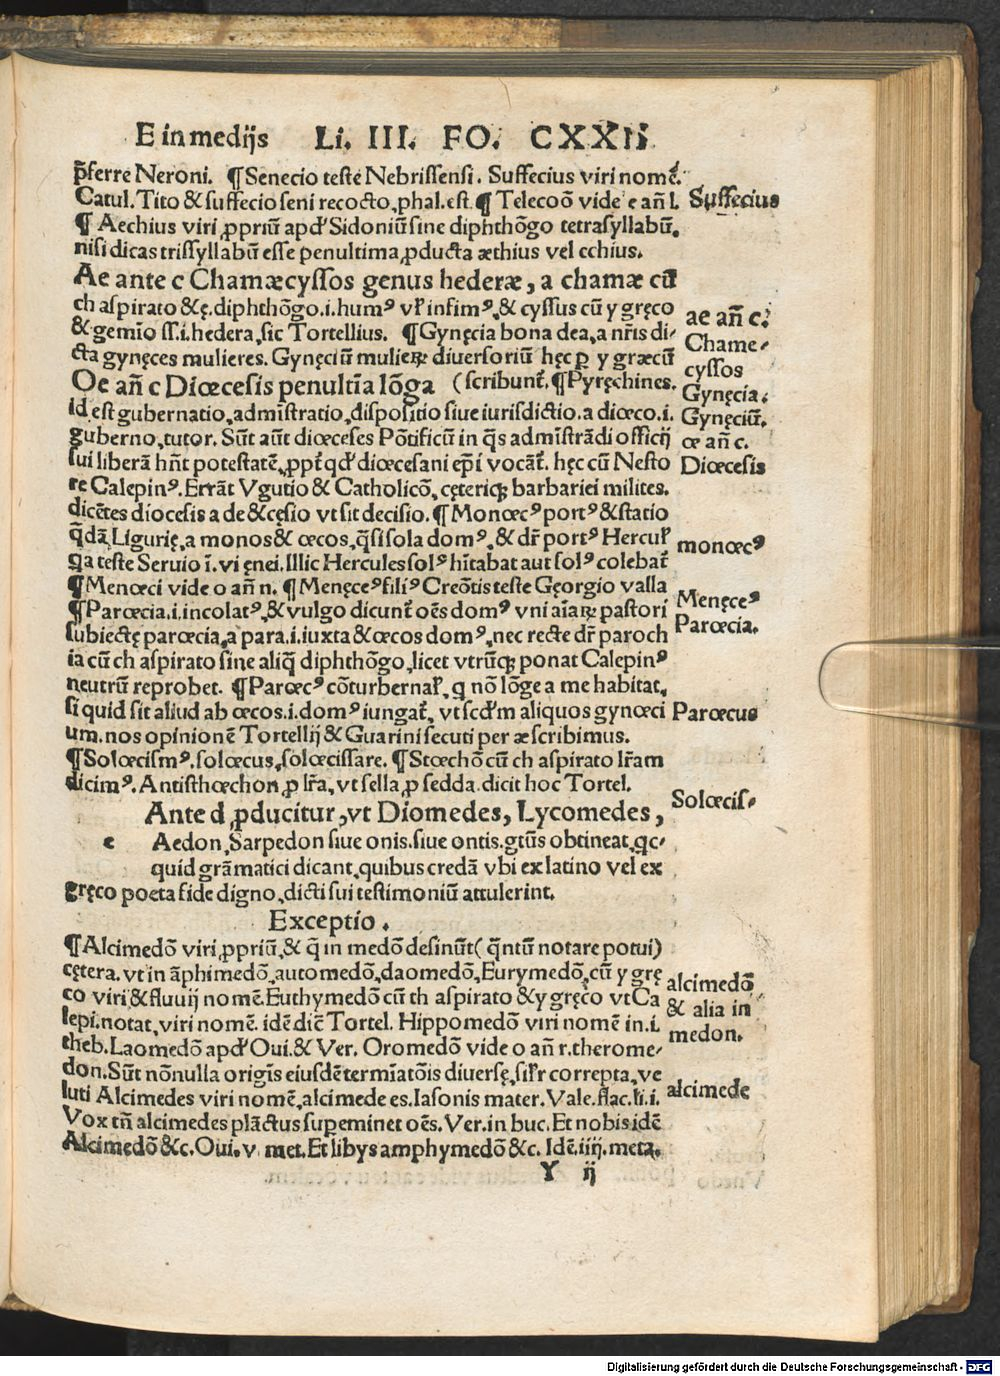 E in medijs Li. III. FO. CXXII
p̄ferre Neroni. ¶ Senecio teste Nebrissensi. Suffecius viri nomē.
Catul. Tito & suffecio seni recocto, phal. est. ¶ Telecoō vide e añ l. Suffecius
¶ Aechius viri ꝓpriū apd' Sidoniū sine diphthōgo tetrasyllabū.
nisi dicas trissyllabū esse penultima ꝓducta æthius vel cchius.
Ae ante c Chamæcyssos genus hederæ, a chamæ cū
ch aspirato & ę. diphthōgo .i. humꝰ vl' infimꝰ, & cyssus cū y gręco ae añ c.
& gemio ss .i. hedera, sic Tortellius. ¶ Gynęcia bona dea, a nr̄is di- Chame-
cta gynęces mulieres. Gynęciū mulieꝝ diuersoriū hęc ꝑ y græcū cyssos
Oe añ c Diœcesis penultīa lōga (scribunt'. ¶ Pyręchines. Gynęcia.
id est gubernatio, admīstratio, dispositio siue iurisdictio. a diœco .i. Gynęciū.
guberno, tutor. Sūt aūt diœceses Pōtificū in q̄s admīstrādi officij œ añ c.
sui liberā hn̄t potestatē, ꝓpt' qd' diœcesani ep̄i vocāt'. hęc cū Nesto Diœcesis
re Calepinꝰ. Errāt Vgutio & Catholicō, cęteriqꝫ barbariei milites.
dicētes diocesis a de & cęsio vt sit decisio. ¶ Monœcꝰ portꝰ & statio
q̄dā Ligurię, a monos & œcos, q̄si sola domꝰ, & dr̄ portꝰ Hercul' monœcꝰ
qa teste Seruio ī. vi ęnei. Illic Hercules solꝰ hītabat aut solꝰ colebat'
¶ Menœci vide o añ n. ¶ Menęceꝰ filiꝰ Creōtis teste Gęorgio valla Menęceꝰ
¶ Parœcia .i. incolatꝰ, & vulgo dicunt' oēs domꝰ vni aīaꝝ pastori Parœcia.
subiectę parœcia, a para .i. iuxta & œcos domꝰ, nec recte dr̄ paroch
ia cū ch aspirato sine aliq̄ diphthōgo, licet vtrūqꝫ ponat Calepinꝰ
neutrū reprobet. ¶ Parœcꝰ cōturbernal', q nō lōge a me habitat,
si quid sit aliud ab œcos .i. domꝰ iungat', vt scd'm aliquos gynœci Parœcus
um. nos opinionē Tortellij & Guarini secuti per æ scribimus.
¶ Solœcismꝰ, solœcus, solœcissare. ¶ Stœchō cū ch aspirato lr̄am
dicimꝰ. Antisthœchon, ꝓ lr̄a, vt sella, ꝓ sedda. dicit hoc Tortel. Solœcis-
Ante d ꝓducitur, vt Diomedes, Lycomedes,
e Aedon, Sarpedon siue onis. siue ontis. gt̄us obtineat, qc-
quid grāmatici dicant, quibus credā vbi ex latino vel ex
gręco poeta fide digno, dicti sui testimoniū attulerint.
Exceptio.
¶ Alcimedō viri ꝓpriū, & q̄ in medō desinūt (q̄ntū notare potui)
cętera. vt in āphimedō, automedō, daomedō, Eurymedō, cū y grę alcimedō
co viri & fluuij nomē. Euthymedō cū th aspirato & y gręco vt Ca & alia in
lepi. notat, viri nomē. idē diē Tortel. Hippomedō viri nomē in .i. medon.
theb. Laomedō apd' Oui. & Ver. Oromedō vide o añ r. therome-
don. Sūt nōnulla origīs eiusdē termīatōis diuersę, sil'r correpta, ve
luti Alcimedes viri nomē, alcimede es. Iasonis mater. Vale. flac. li. i. alcimede
Vox tn̄ alcimedes plāctus supeminet oēs. Ver. in buc. Et nobis idē
Alcimedō &c. Oui. v. met. Et libys amphymedō &c. Idē. iiij. meta.
Y ij
Digitalisierung gefördert durch die Deutsche Forschungsgemeinschaft - DFG